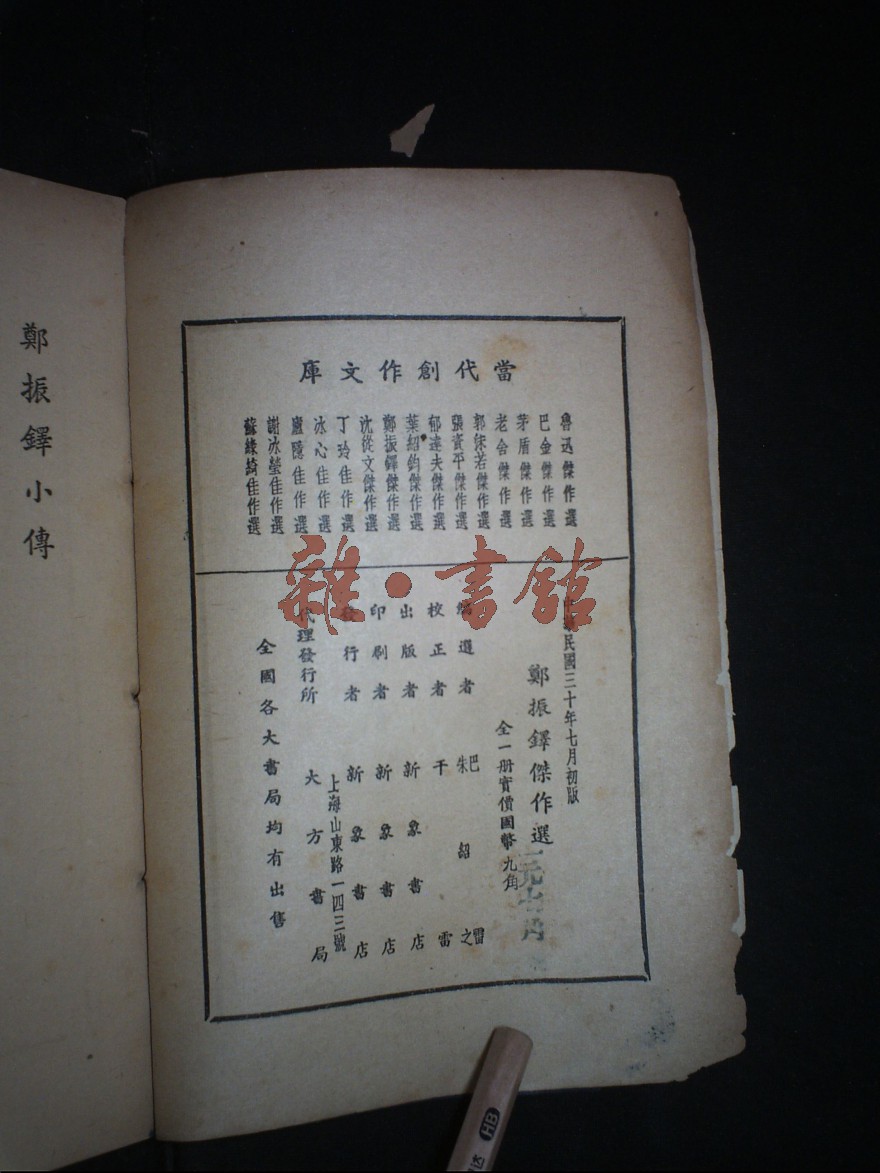 當代創作文庫
魯迅傑作選
巴金傑作選
茅盾傑作選
老舍傑作選
郭沫若傑作選
張資平傑作選
郁達夫傑作選
葉紹鈞傑作選
鄭振鐸傑作選
沈從文傑作選
丁玲佳作選
冰心佳作選
廬隱佳作選
謝冰瑩佳作選
蘇綠綺佳作選
中華民國三十年七月初版
鄭振鐸傑作選
全一册實價國幣九角
一元七角
編選者 巴雷 朱紹之
校正者 干雷
出版者 新象書店
印刷者 新象書店
發行者 新象書店
上海山東路一四三號
代理發行所 大方書局
全國各大書局均有出售
鄭振鐸小傳
雜·書館
HB